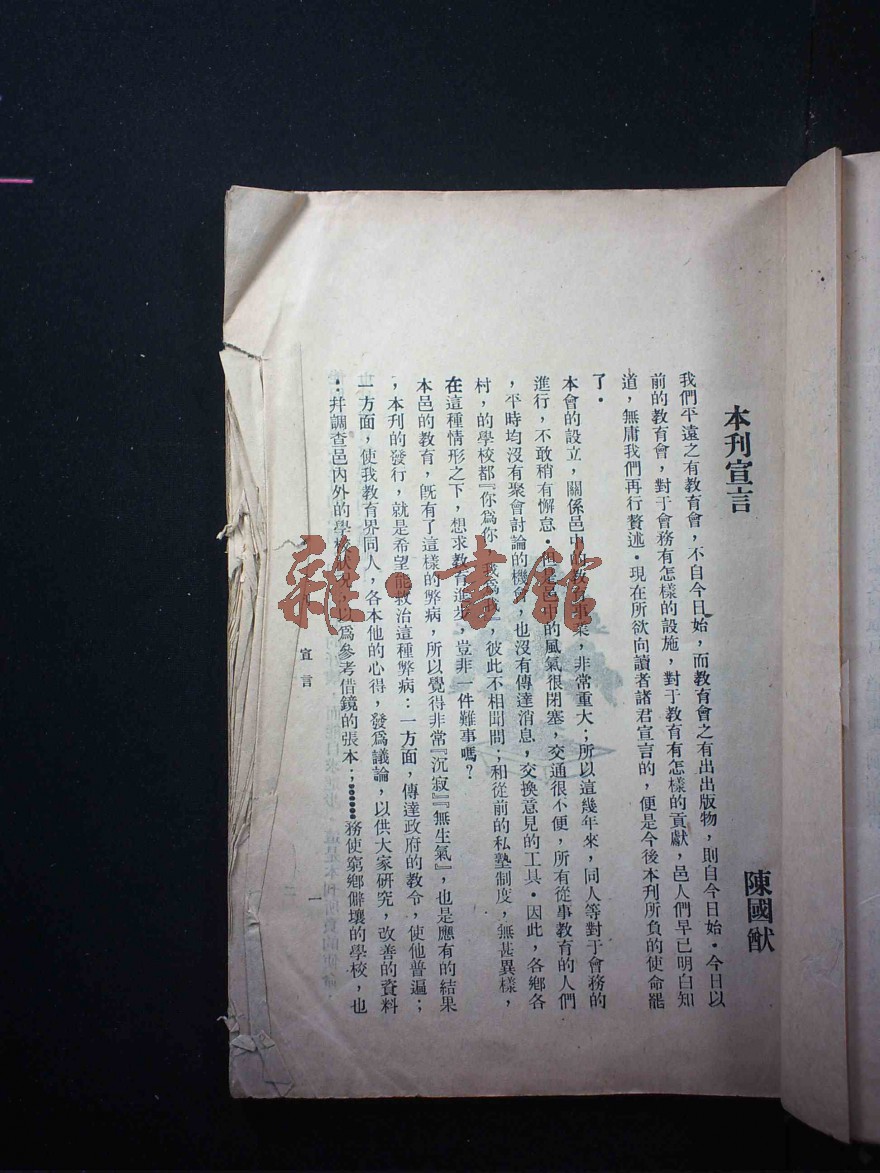 本刊宣言
陳國猷
我們平遠之有教育會，不自今日始，而教育會之有出出版物，則自今日始．今日以
前的教育會，對于會務有怎樣的設施，對于教育有怎樣的貢獻，邑人們早已明白知
道，無庸我們再行贅述．現在所欲向讀者諸君宣言的，便是今後本刊所負的使命罷
了．
本會的設立，關係邑中的教育事業，非常重大；所以這幾年來，同人等對于會務的
進行，不敢稍有懈息．但是邑中的風氣很閉塞，交通很不便，所有從事教育的人們
，平時均沒有聚會討論的機會，也沒有傳達消息，交換意見的工具．因此，各鄉各
村，的學校都『你爲你，我爲我』，彼此不相聞問；和從前的私塾制度，無甚異樣，
在這種情形之下，想求教育進步，豈非一件難事嗎？
本邑的教育，旣有了這樣的弊病，所以覺得非常『沉寂』『無生氣』，也是應有的結果
，本刊的發行，就是希望能救治這種弊病：一方面，傳達政府的教令，使他普遍；
一方面，使我教育界同人，各本他的心得，發爲議論，以供大家研究，改善的資料
：幷調查邑內外的學校狀況，以爲參考借鏡的張本；……務使窮鄉僻壤的學校，也
宣言
一
雜·書館